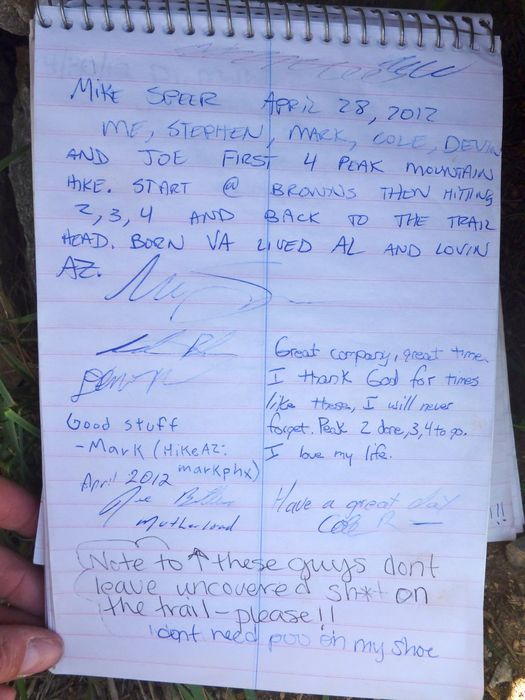 MIKE SPEER APRIL 28, 2012
ME, STEPHEN, MARK, COLE, DEVIN
AND JOE FIRST 4 PEAK MOUNTAIN
HIKE. START @ BROWNS THEN HITTING
2, 3, 4 AND BACK TO THE TRAIL
HEAD. BORN VA LIVED AL AND LOVIN
AZ.
Great company, great time.
I thank God for times
like these, I will never
forget. Peak 2 done, 3, 4 to go.
I love my life.
Good stuff
- Mark (HikeAZ:
markphx)
April 2012
Joe
Motherload
Have a great day
Cole R
!!!
Note to ↑ these guys dont
leave uncovered sh*t on
the trail - please!!
I dont need poo on my shoe